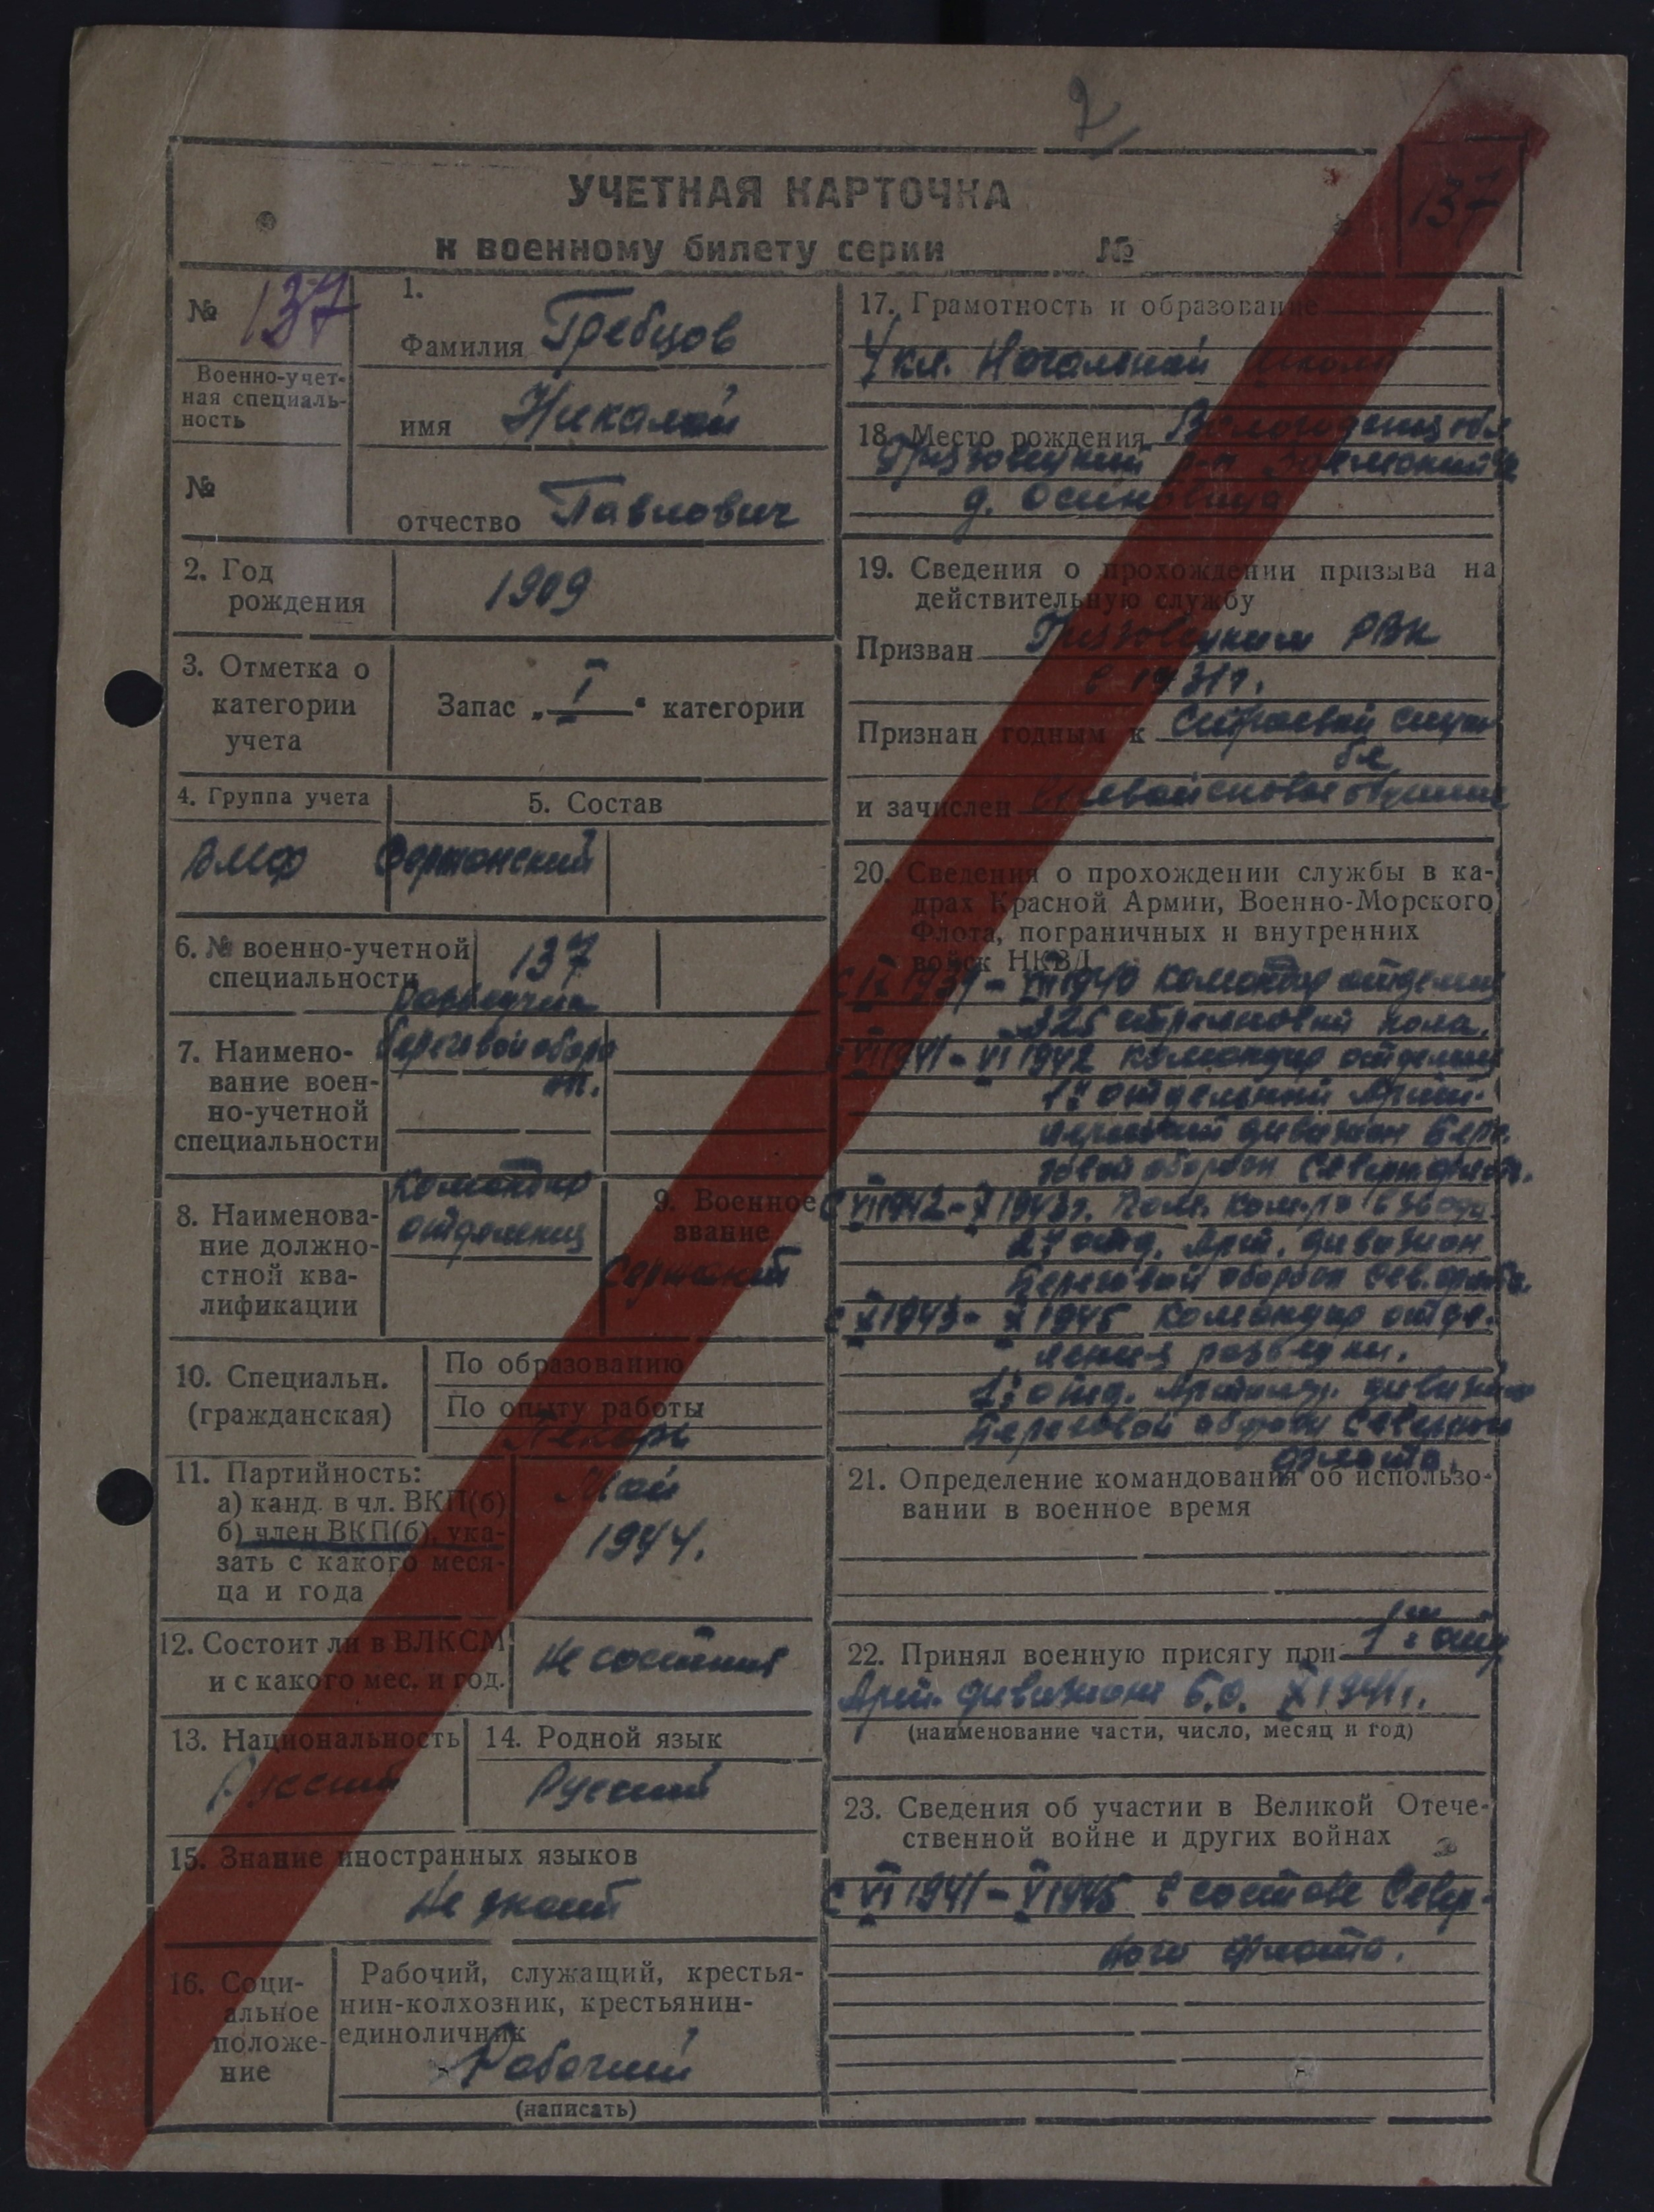 2
137
УЧЕТНАЯ КАРТОЧКА
к военному билету серии №
№ 137
Военно-учет-
ная специаль-
ность
№
1.
Фамилия Гребцов
имя Николай
отчество Павлович
2. Год
рождения
1909
3. Отметка о
категории
учета
Запас „I“ категории
4. Группа учета
ВМФ
5. Состав
Сержанский
6. № военно-учетной
специальности
137
7. Наимено-
вание воен-
но-учетной
специальности
Разведчик
береговой оборо
8. Наименова-
ние должно-
стной ква-
лификации
Командир
отделения
9. Военное
звание
Сержант
10. Специальн.
(гражданская)
По образованию
По опыту работы
Пекарь
11. Партийность:
а) канд. в чл. ВКП(б)
б) член ВКП(б), ука-
зать с какого меся-
ца и года
Май
1944.
12. Состоит ли в ВЛКСМ
и с какого мес. и год.
Не состоит
13. Национальность
Русский
14. Родной язык
Русский
15. Знание иностранных языков
Не знает
16. Соци-
альное
положе-
ние
Рабочий, служащий, крестья-
нин-колхозник, крестьянин-
единоличник
Рабочий
(написать)
17. Грамотность и образование
4 кл. Начальной школы
18. Место рождения Вологодская обл
Грязовецкий р-н
д. Осиновица
19. Сведения о прохождении призыва на
действительную службу
Призван Грязовецким РВК
в 1931г.
Признан годным к Строевой служ
бе
и зачислен
20. Сведения о прохождении службы в ка-
драх Красной Армии, Военно-Морского
Флота, пограничных и внутренних
войск НКВД
1940 командир отделен
325 стрелковый полк.
VI 1941 - VI 1942 командир отделения
1й отдельный Артил-
лерийский дивизион Бере-
говой оборон Северн флот.
С VII 1942 - X 1943г. Пом. ком-ра взвода
2й отд. Арт. дивизион
Береговой оборон Сев. флота.
С X 1943 - X 1945 Командир отде-
ления разведки.
отд. Артилер. дивизион
Береговой оборон Северного
флота.
21. Определение командования об использо-
вании в военное время
22. Принял военную присягу при 1й отд
Арт. дивизионе Б.О. X 1941г.
(наименование части, число, месяц и год)
23. Сведения об участии в Великой Отече-
ственной войне и других войнах
С VI 1941 - V 1945 в составе Север-
ного флота.